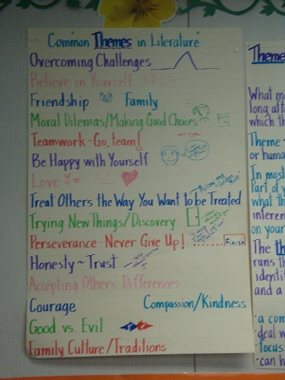 Common Themes in Literature
Overcoming Challenges
Believe in Yourself
Friendship Family
Moral Dilemas/Making Good Choices
Teamwork - Go, team!
Be Happy with Yourself
Love
Treat Others the Way You Want to be Treated
Trying New Things/Discovery
Perseverance - Never Give Up! Finish
Honesty ~ Trust
Accepting Others Differences
Courage Compassion/Kindness
Good vs. Evil
Family Culture/Traditions
Theme
What m
long aft
which th
Theme
or huma
In most
Part of
what th
inferen
on your
The th
runs th
identit
and a
a com
deal w
focus
can h